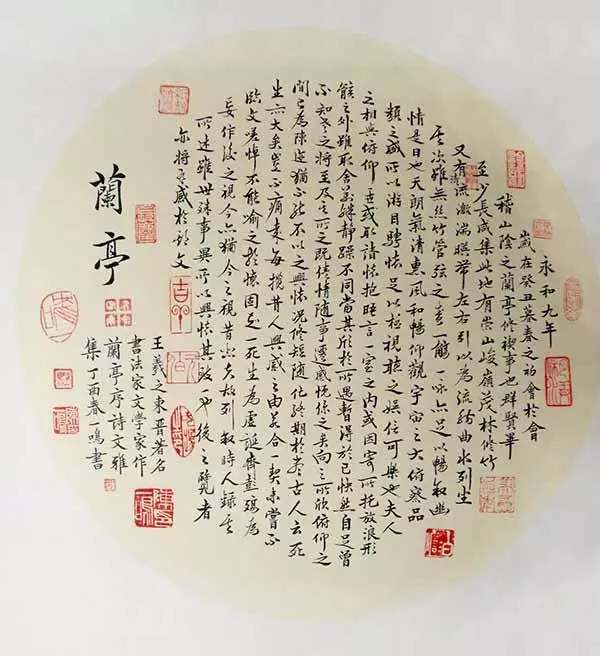 永和九年
歲在癸丑暮春之初會於會
稽山陰之蘭亭修禊事也群賢畢
至少長咸集此地有崇山峻嶺茂林修竹
又有清流激湍映帶左右引以為流觴曲水列坐
其次雖無絲竹管弦之盛一觴一詠亦足以暢敘幽
情是日也天朗氣清惠風和暢仰觀宇宙之大俯察品
類之盛所以游目騁懷足以極視聽之娛信可樂也夫人
之相與俯仰一世或取諸懷抱晤言一室之內或因寄所托放浪形
骸之外雖取舍萬殊靜躁不同當其欣於所遇暫得於己快然自足曾
不知老之將至及其所之既倦情隨事遷感慨係之矣向之所欣俯仰之
間已為陳迹猶不能不以之興懷況修短隨化終期於盡古人云死
生亦大矣豈不痛哉每攬昔人興感之由若合一契未嘗不
臨文嗟悼不能喻之於懷固知一死生為虛誕齊彭殤為
妄作後之視今亦猶今之視昔悲夫故列敘時人錄其
所述雖世殊事異所以興懷其致一也後之覽者
亦將有感於斯文
蘭亭
王羲之東晉著名
書法家文學家作
蘭亭序詩文雅
集丁酉春一鳴書